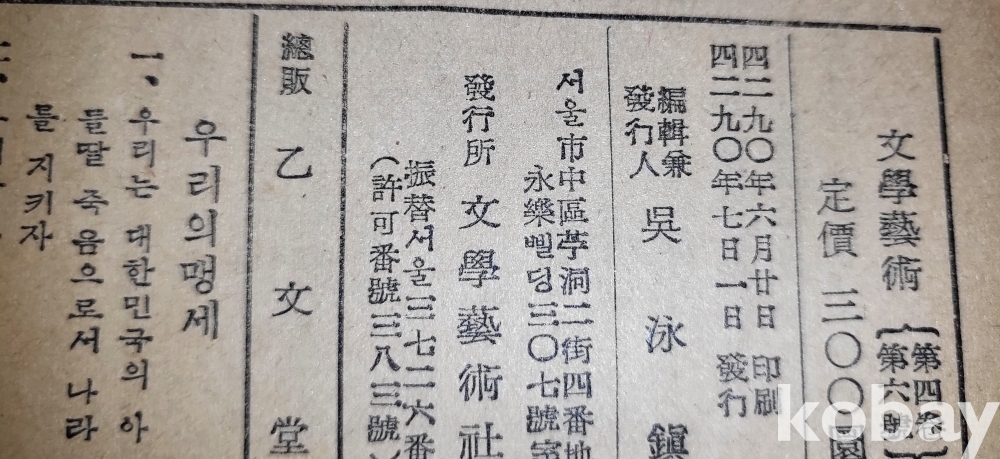 文學藝術
第四卷
第六號
定價 三〇〇圜
四二九〇年六月廿日 印刷
四二九〇年七日一日 發行
編輯兼
發行人
吳泳鎭
서울市中區苧洞二街四番地
永樂삘딍三〇七號室
發行所 文學藝術社
振替서울三七二六番
(許可番號三八三號)
總販 乙文堂
우리의맹세
一, 우리는 대한민국의 아
들딸 죽음으로서 나라
를 지키자
kobay